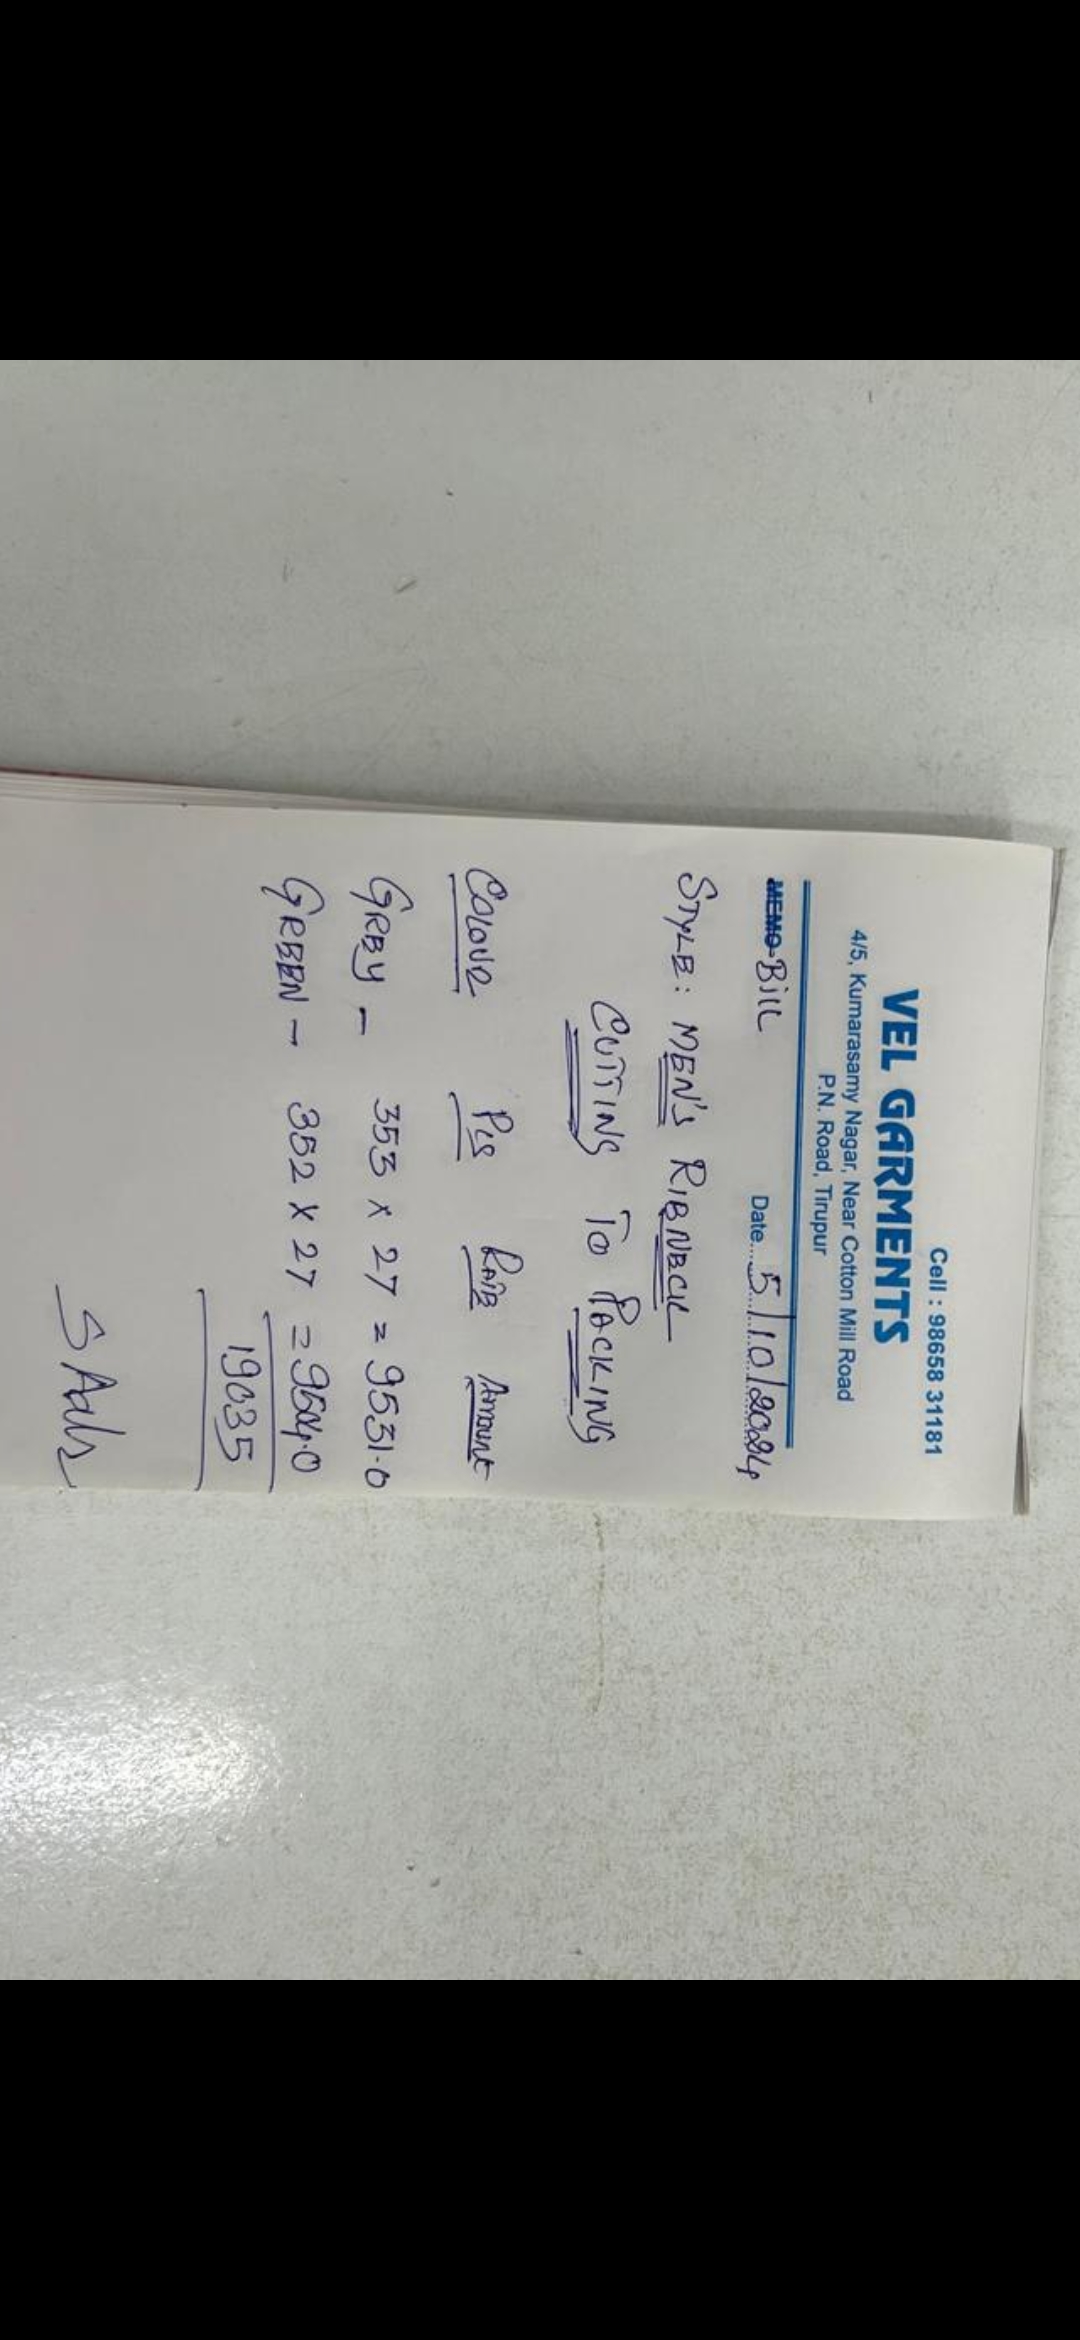 Cell : 98658 31181
VEL GARMENTS
4/5, Kumarasamy Nagar, Near Cotton Mill Road
P.N. Road, Tirupur
MEMO BILL Date 5/10/2024
STYLE: MEN'S RIBNECK
CUTTING TO PACKING
COLOUR PCS RATE Amount
GREY - 353 x 27 = 9531.0
GREEN - 352 x 27 = 9504.0
19035